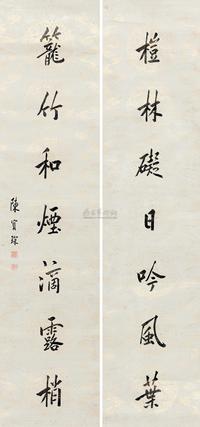 榿林礙日吟風葉
籠竹和煙滴露梢
陳寶琛